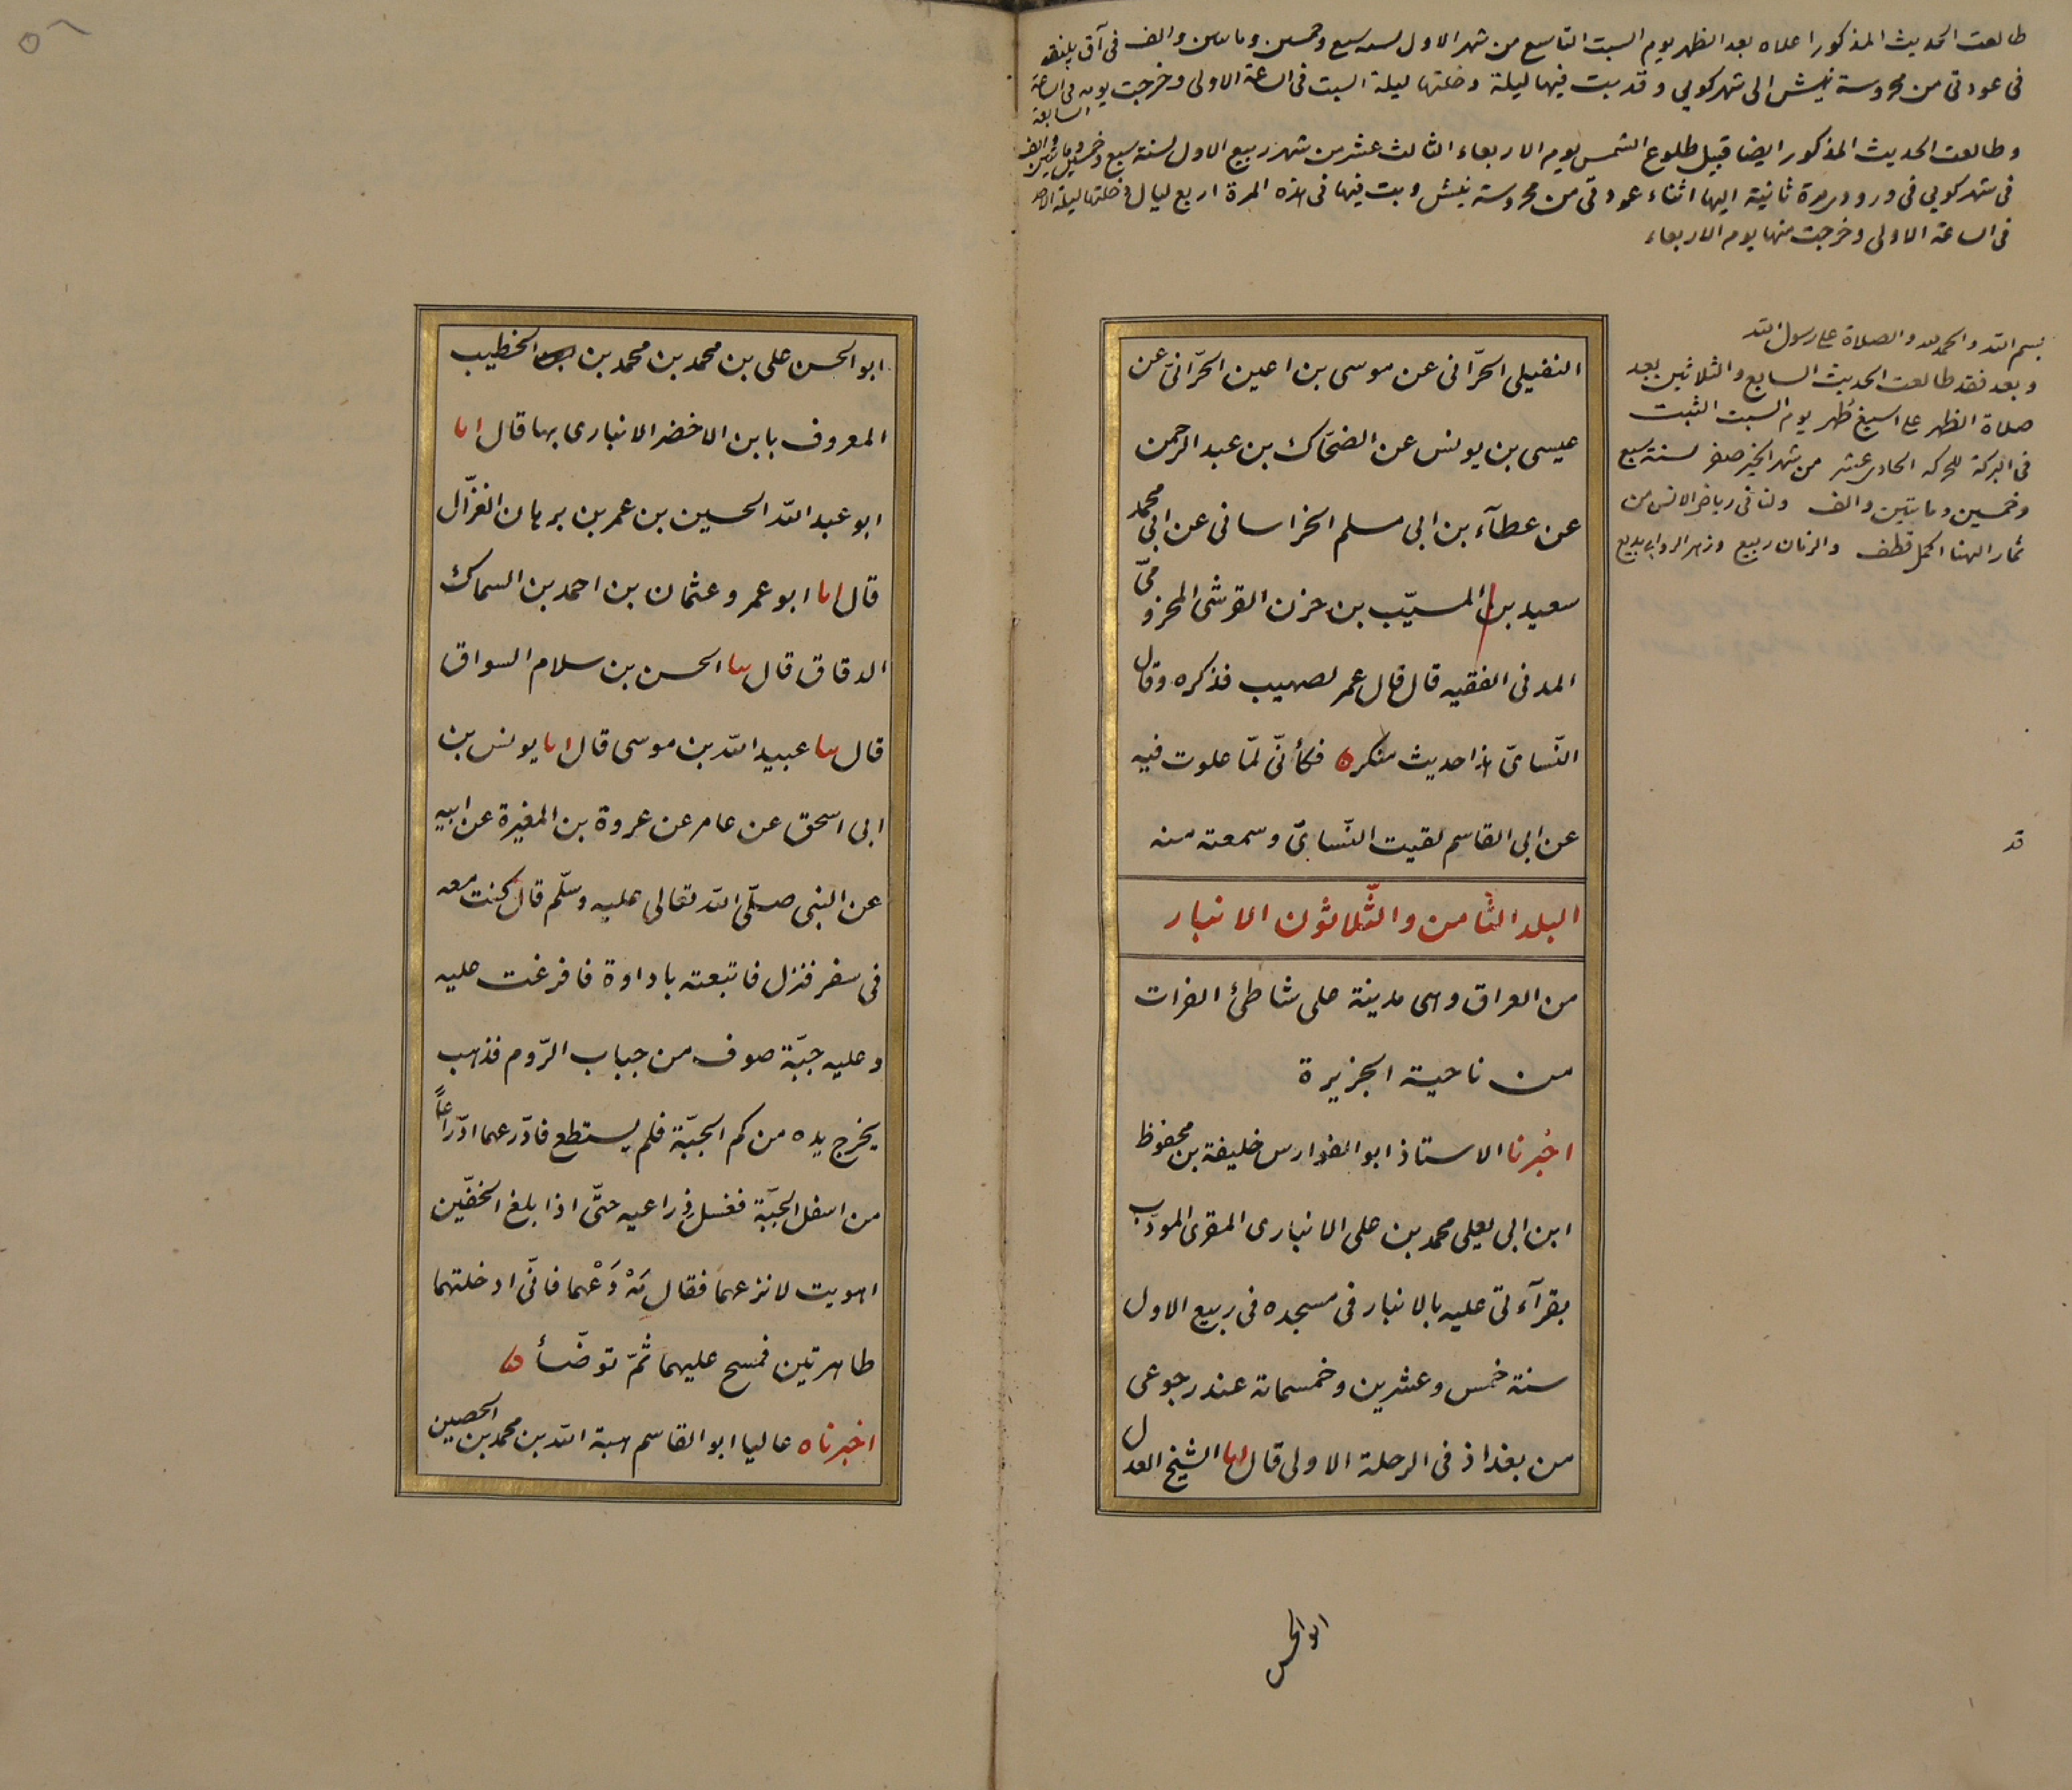 طالعت الحديث المذكور اعلاه بعد الظهر يوم السبت التاسع من شهر الاول لسنه سبع وخمسين وماتين والف فى آق پلنقه
فى عودتى من محروسة نيش الى شهركويى وقد بت فيها ليلة دخلتها ليلة السبت فى الساعة الاولى وخرجت يومه فى الساعة
السابعة
وطالعت الحديث المذكور ايضا قبيل طلوع الشمس يوم الاربعاء الثالث عشر من شهر ربيع الاول لسنة سبع وخمسين وماتين والف
فى شهركويى فى ورودى مرة ثانية اليها اثناء عودتى من محروسة نيش وبت فيها فى هذه المرة اربع ليال دخلتها ليلة الاحد
فى الساعة الاولى وخرجت منها يوم الاربعاء
بسم الله والحمد لله والصلاة على رسول الله
وبعد فقد طالعت الحديث السابع والثلاثين بعد
صلاة الظهر على اسبغ طهر يوم السبت المثبت
فى البركة للحركه الحادى عشر من شهر الخير صفر لسنة سبع
وخمسين وماتين والف ولنا فى رياض الانس من
ثمار الهنا اكمل قطف والزمان ربيع وزهر الروابى بديع
النفيلى الحرّانى عن موسى بن اعين الحرّانىّ عن
عيسى بن يونس عن الضحّاك بن عبد الرحمن
عن عطآء بن ابى مسلم الخراسانى عن ابى محمد
سعيد بن المسيّب بن حزن القرشى المخزومىّ
المدنى الفقيه قال قال عمر لصهيب فذكره وقال
النّسائىّ هذا حديث منكر ه فكأنّى لمّا علوت فيه
عن ابى القاسم لقيت النّسائىّ وسمعته منه
قد
البلد الثّامن والثّلاثون الانبار
من العراق وهى مدينة على شاطئ الفرات
من ناحية الجزيرة
اخبرنا الاستاذ ابو الفوارس خليفة بن محفوظ
ابن ابى يعلى محمد بن على الانبارى المقرى المودّب
بقرآءتى عليه بالانبار فى مسجده فى ربيع الاول
سنة خمس وعشرين وخمسماة عند رجوعى
من بغداذ فى الرحلة الاولى قال انا الشيخ العدل
ابو الحسن
ابو الحسن على بن محمد بن محمد بن الخطيب
المعروف بابن الاخضر الانبارى بها قال انا
ابو عبد الله الحسين بن عمر بن برهان الغزّال
قال انا ابو عمرو عثمان بن احمد بن السماك
الدقاق قال نا الحسن بن سلام السواق
قال نا عبيد الله بن موسى قال انا يونس بن
ابى اسحق عن عامر عن عروة بن المغيرة عن ابيه
عن النبى صلّى الله تعالى عليه وسلّم قال كنت معه
فى سفر فنزل فاتبعته باداوة فافرغت عليه
وعليه جبّة صوف من جباب الرّوم فذهب
يخرج يده من كم الجبّة فلم يستطع فادّرعهما ادّراعاً
من اسفل الجبّة فغسل ذراعيه حتّى اذا بلغ الخفّين
اهويت لانزعهما فقال مَهْ دَعْهما فانّى ادخلتهما
طاهرتين فمسح عليهما ثمّ توضّأ ه
اخبرناه عاليا ابو القاسم هبة الله بن محمد بن الحصين